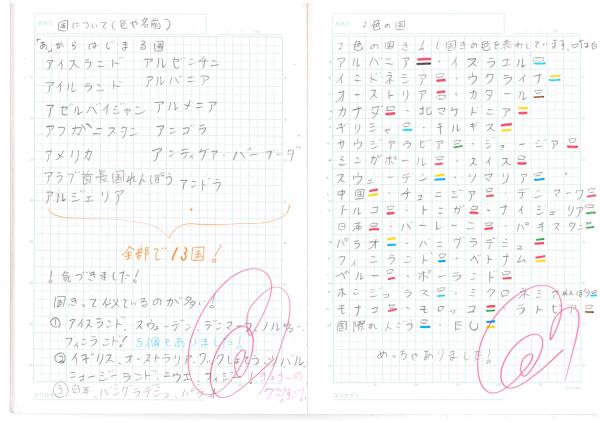 国について(色や名前)
「あ」からはじまる国
アイスランド アルゼンチン
アイルランド アルバニア
アゼルバイジャン アルメニア
アフガニスタン アンゴラ
アメリカ アンティグァ・バーブーダ
アラブ首長国れんぽう アンドラ
アルジェリア
全部で13国!
! 気づきました!
国きって似ているのが多い!
① アイスランド、スウェーデン、デンマーク、ノルウェー、
フィンランド! 5個もありました!
② イギリス、オーストラリア、クックしょとう、ツバル、
ニュージーランド、ニウエ、フィジー!
③ 日本、バングラデシュ、パラオ
2色の国
2色の国き
アルバニア・イスラエル
インドネシア・ウクライナ
オーストリア・カタール
カナダ・北マケドニア
ギリシャ・キルギス
サウジアラビア・ジョージア
シンガポール・スイス
スウェーデン・ソマリア
中国・チュニジア・デンマーク
トルコ・トンガ・ナイジェリア
日本・バーレーン・パキスタン
パラオ・バングラデシュ
フィンランド・ベトナム
ペルー・ポーランド
ホンジュラス・ミクロネシアれんぽう
モナコ・モロッコ・ラトビア
国際れんごう・EU
めっちゃありました!